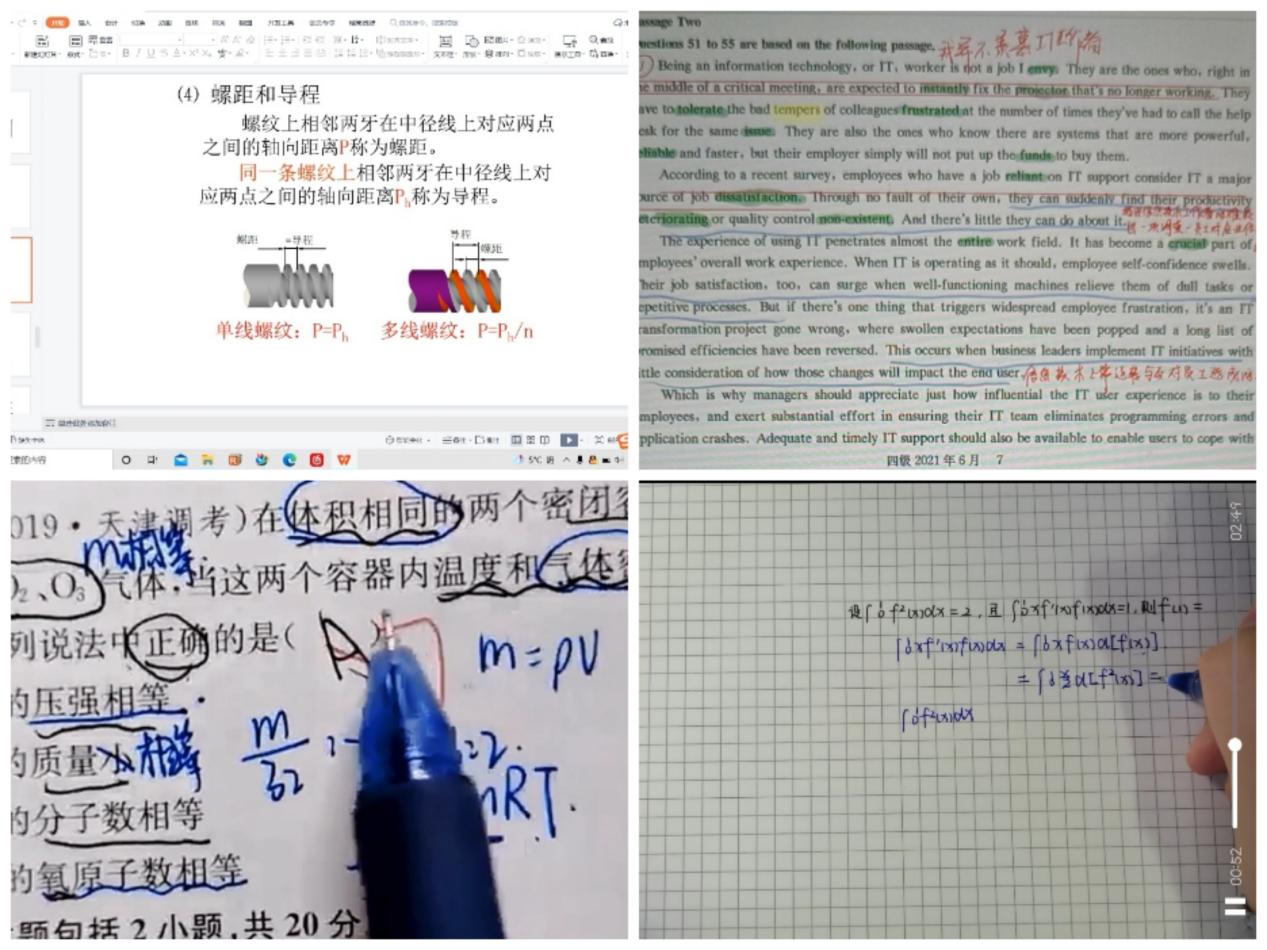 (4) 螺距和导程
螺纹上相邻两牙在中径线上对应两点
之间的轴向距离P称为螺距。
同一条螺纹上相邻两牙在中径线上对
应两点之间的轴向距离Ph称为导程。
螺距 =导程
导程
螺距
单线螺纹：P=Ph 多线螺纹：P=Ph/n
单击此处添加备注
5°C 阴
assage Two
uestions 51 to 55 are based on the following passage.
Being an information technology, or IT, worker is not a job I envy. They are the ones who, right in
e middle of a critical meeting, are expected to instantly fix the projector that's no longer working. They
ave to tolerate the bad tempers of colleagues frustrated at the number of times they've had to call the help
esk for the same issue. They are also the ones who know there are systems that are more powerful,
eliable and faster, but their employer simply will not put up the funds to buy them.
According to a recent survey, employees who have a job reliant on IT support consider IT a major
ource of job dissatisfaction. Through no fault of their own, they can suddenly find their productivity
eteriorating or quality control non-existent. And there's little they can do about it.
The experience of using IT penetrates almost the entire work field. It has become a crucial part of
mployees' overall work experience. When IT is operating as it should, employee self-confidence swells.
heir job satisfaction, too, can surge when well-functioning machines relieve them of dull tasks or
epetitive processes. But if there's one thing that triggers widespread employee frustration, it's an IT
ransformation project gone wrong, where swollen expectations have been popped and a long list of
romised efficiencies have been reversed. This occurs when business leaders implement IT initiatives with
ittle consideration of how those changes will impact the end user.
Which is why managers should appreciate just how influential the IT user experience is to their
mployees, and exert substantial effort in ensuring their IT team eliminates programming errors and
pplication crashes. Adequate and timely IT support should also be available to enable users to cope with
四级 2021年6月 7
019·天津调考)在体积相同的两个密闭容
m相等
O₂、O₃气体,当这两个容器内温度和气体密
列说法中正确的是( A )
m=ρV
的压强相等
的质量 相等
m/32
=2
nRT.
的分子数相等
的氧原子数相等
题包括2小题,共20分
设∫₀¹f²(x)dx=2,且∫₀¹xf'(x)f(x)dx=1,则f(1)=
∫₀¹xf'(x)f(x)dx=∫₀¹xf(x)d[f(x)]
=∫₀¹x/2 d[f²(x)]=
∫₀¹f²(x)dx
02:49
00:52